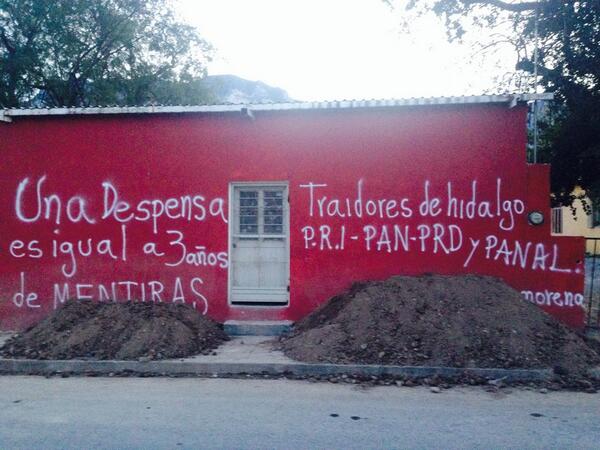 Una Despensa
es igual a 3 años
de MENTIRAS
Traidores de hidalgo
P.R.I-PAN-PRD y PANAL.
morena